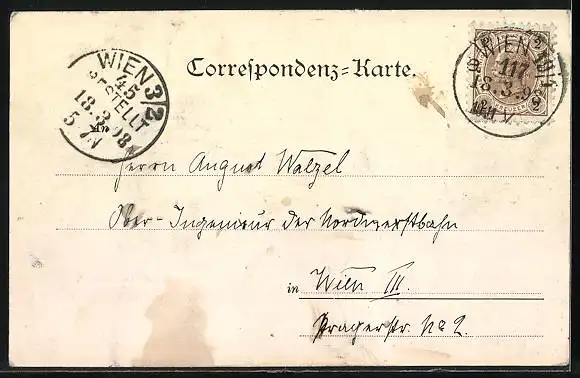 Correspondenz-Karte.
WIEN 3/2
45
BESTELLT
18.3.98
5
WIEN 10/1
117
18.3.9
2
2
Herrn August Walzel
Ober-Ingenieur der Nordwestbahn
in Wien III.
Pragerstr. No 2.